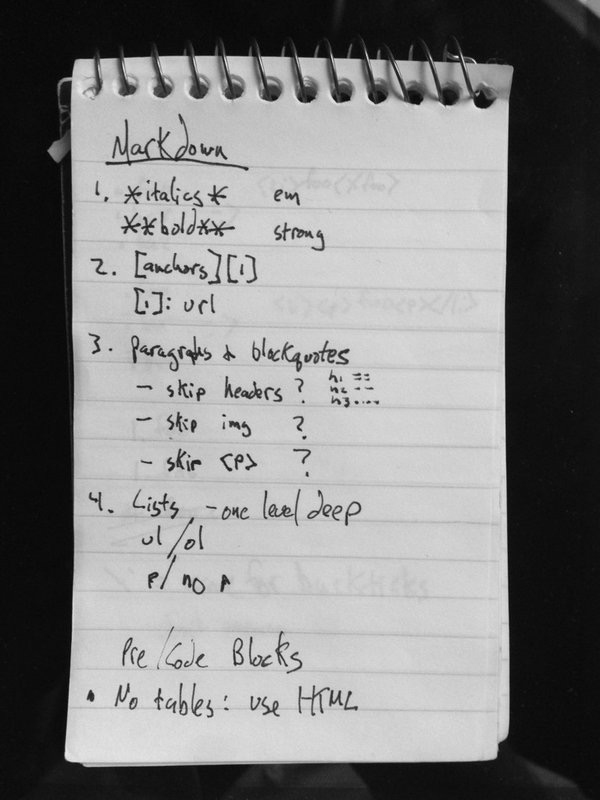 Markdown
1. *italics* em
**bold** strong
2. [anchors][1]
[1]: url
3. paragraphs & blockquotes
- skip headers ? h1 ==
h2 --
h3
- skip img ?
- skip <P> ?
4. Lists - one level deep
ul/ol
P/no P
Pre/Code Blocks
• No tables: use HTML